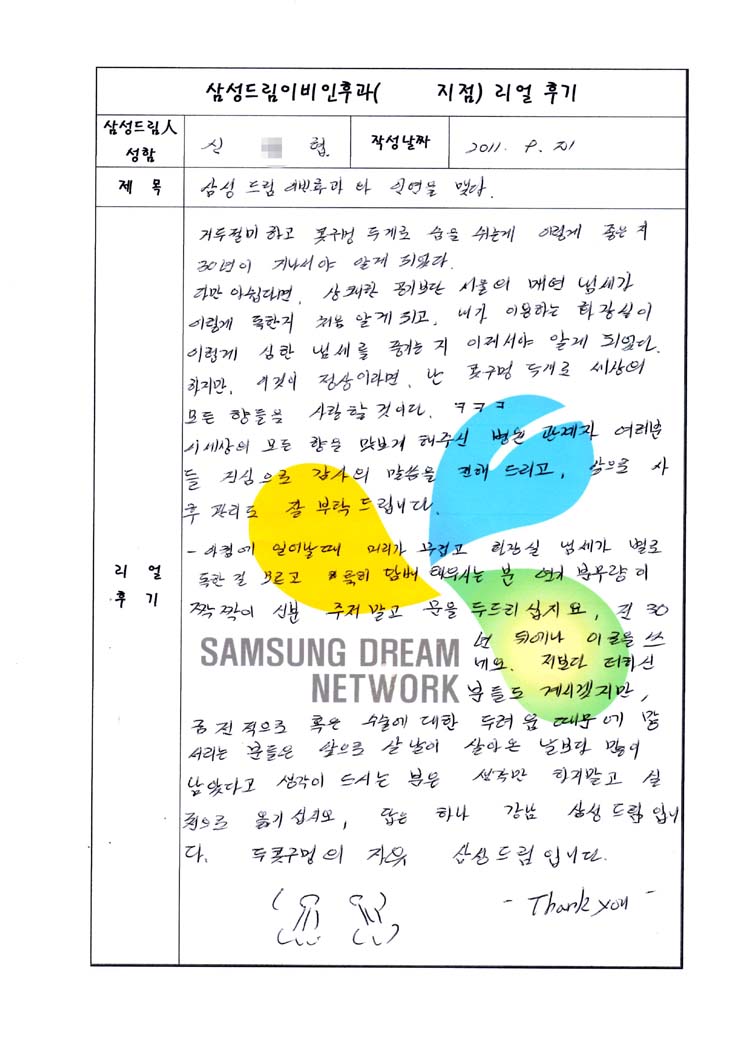 삼성드림이비인후과( 지점) 리얼 후기
삼성드림人
성함
신 협.
작성날짜
2011. 9. 21
제 목
삼성 드림 이비인후과 와 인연을 맺다.
거두절미 하고 콧구멍 두개로 숨을 쉬는게 이렇게 좋은 지
30년이 지나서야 알게 되었다.
다만 아쉽다면, 상쾌한 공기보단 서울의 매연 냄세가
이렇게 독한지 처음 알게 되고, 내가 이용하는 화장실이
이렇게 심한 냄세를 풍기는 지 이제서야 알게 되었다.
하지만, 이것이 정상이라면, 난 콧구멍 두개로 세상의
모든 향들을 사랑할 것이다. ㅋㅋㅋ
이세상의 모든 향을 맛보게 해주신 병원 관계자 여러분
들 진심으로 감사의 말씀을 전해 드리고, 앞으로 사
후 관리도 잘 부탁 드립니다.
- 아침에 일어날때 머리가 무겁고 화장실 냄세가 별로
독한 걸 모르고 특히 담배 태우시는 분 연기 분무량이
짝짝이 신분 주저 말고 문을 두드리십시요, 전 30
년 되어나 이 글을 쓰
네요. 저보다 더하신
분들도 계시겠지만,
금전적으로 혹은 수술에 대한 두려움 때문에 망
서리는 분들은 앞으로 살 날이 살아온 날보다 많이
남았다고 생각이 드시는 분은 생각만 하지말고 실
천으로 옮기십시요, 답은 하나 강남 삼성 드림 입니
다. 두콧구멍의 자유 삼성드림 입니다.
- Thank you -
SAMSUNG DREAM
NETWORK
리 얼
후 기